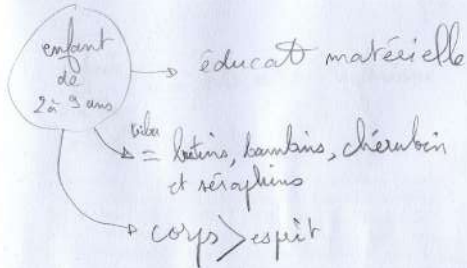 enfant
de
2 à 9 ans
éducat° matérielle
tribu
= lutins, bambins, chérubin
et séraphins
corps > esprit